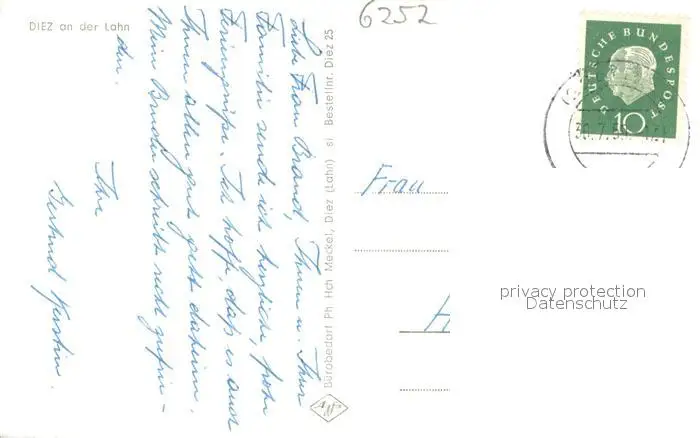 DIEZ an der Lahn
6252
Liebe Frau Brand, Ihnen u. Ihrer
Familie sende ich herzliche, frohe
Feriengrüße. Ich hoffe, daß es auch
Ihnen allen gut geht daheim.
Mein Bruder schreibt recht zufrie-
den.
Ihre
Gertrud
Bürobedarf Ph Hch Meckel, Diez (Lahn) si Bestellnr. Diez 25
Agfa
DEUTSCHE BUNDESPOST
10
Frau
privacy protection
Datenschutz